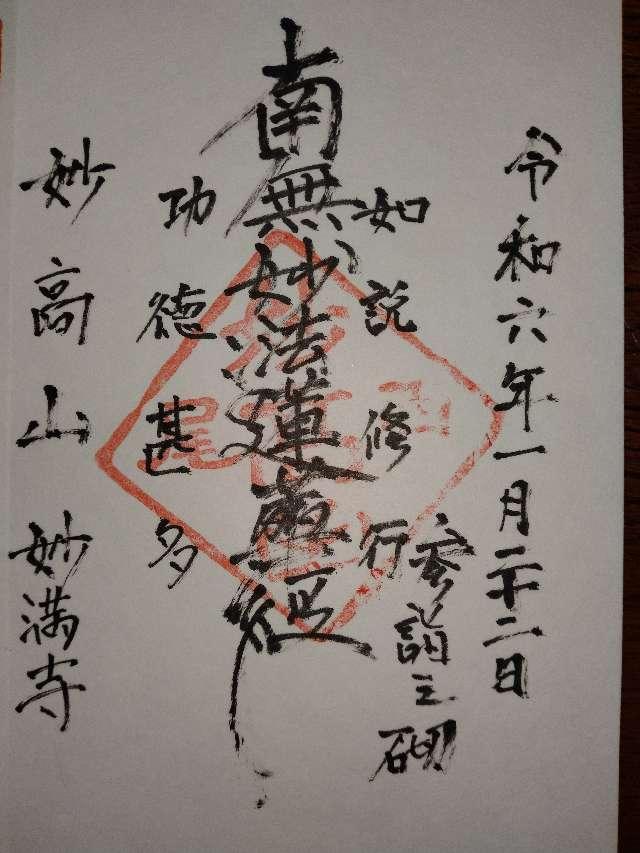 令和六年一月二十二日
参詣之砌
如説修行
南無妙法蓮華経
功徳甚多
妙高山 妙満寺